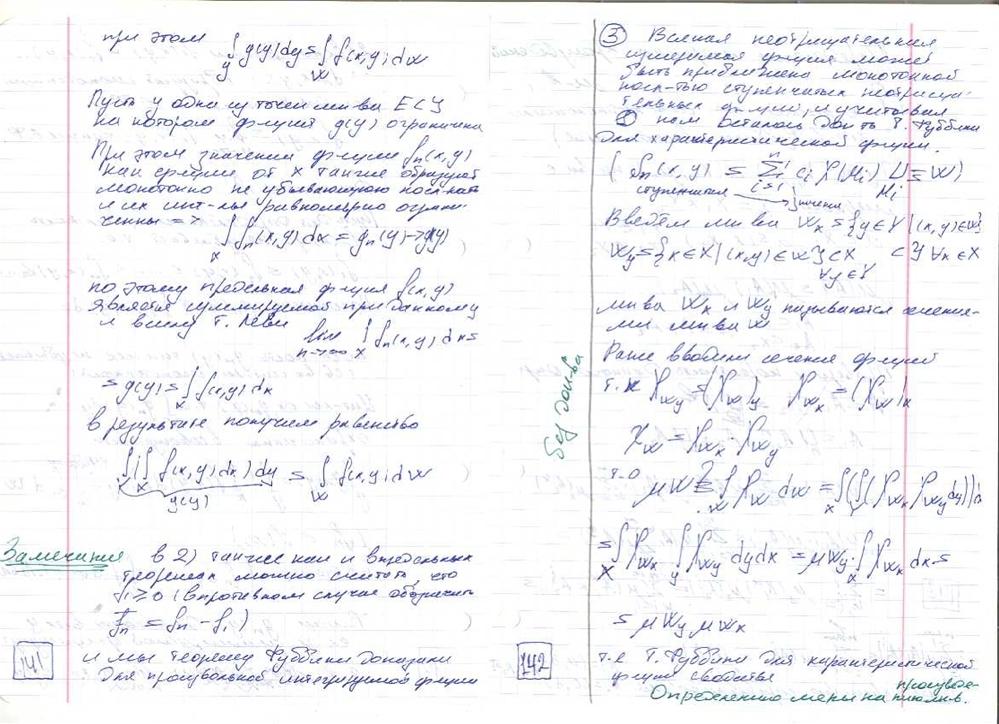 при этом
∫_y g(y) dy = ∫_W f(x,y) dW
Пусть y одна из точек мн-ва E⊂Y
на котором функция g(y) ограничена
При этом значении функции f_n(x,y)
как функции от x также образуют
монотонно не убывающую посл-ность
и их инт-лы равномерно ограни-
ченны =>
∫_X f_n(x,y) dx = g_n(y) → g(y)
по этому предельная функция f(x,y)
является суммируемой при данном y
и в силу т. Леви
lim_{n→∞} ∫_X f_n(x,y) dx =
= g(y) = ∫_X f(x,y) dx
в результате получим равенство
∫_Y (∫_X f(x,y) dx) dy = ∫_W f(x,y) dW
g(y)
Замечания в 2) также как и в предельных
теоремах можно считать, что
f_1 ≥ 0 (в противном случае обозначить
f̄_n = f_n - f_1)
и мы теорему Фуббини доказали
для произвольной интегрируемой функции
141
без док-ва
③ Всякая неотрицательная
суммируемая функция может
быть приближена монотонной
посл-тью ступенчатых неотрица-
тельных функций, и учитывая
① нам осталось док-ть Т. Фуббини
для характеристической функции.
(f_n(x,y) = ∑_{i=1}^n c_i χ(M_i) ⊔ M_i = W)
ступенчатая
Введём мн-ва W_x = {y∈Y | (x,y)∈W}
⊂ Y ∀x∈X
W_y = {x∈X | (x,y)∈W} ⊂ X
∀y∈Y
мн-ва W_x и W_y называются сечения-
ми мн-ва W
Ранее вводили сечения функций
т.к χ_{W_y} = (χ_W)_y χ_{W_x} = (χ_W)_x
χ_W = χ_{W_x} · χ_{W_y}
т.о μW = ∫_W χ_W dW = ∫_X (∫_Y (χ_{W_x} χ_{W_y} dy)) d
= ∫_X χ_{W_x} ∫_Y χ_{W_y} dy dx = μW_y · ∫_X χ_{W_x} dx =
= μW_y μW_x
т.е Т. Фуббини для характеристической
функции свойства
Определению меры на произведе-
нии мн-в.
142